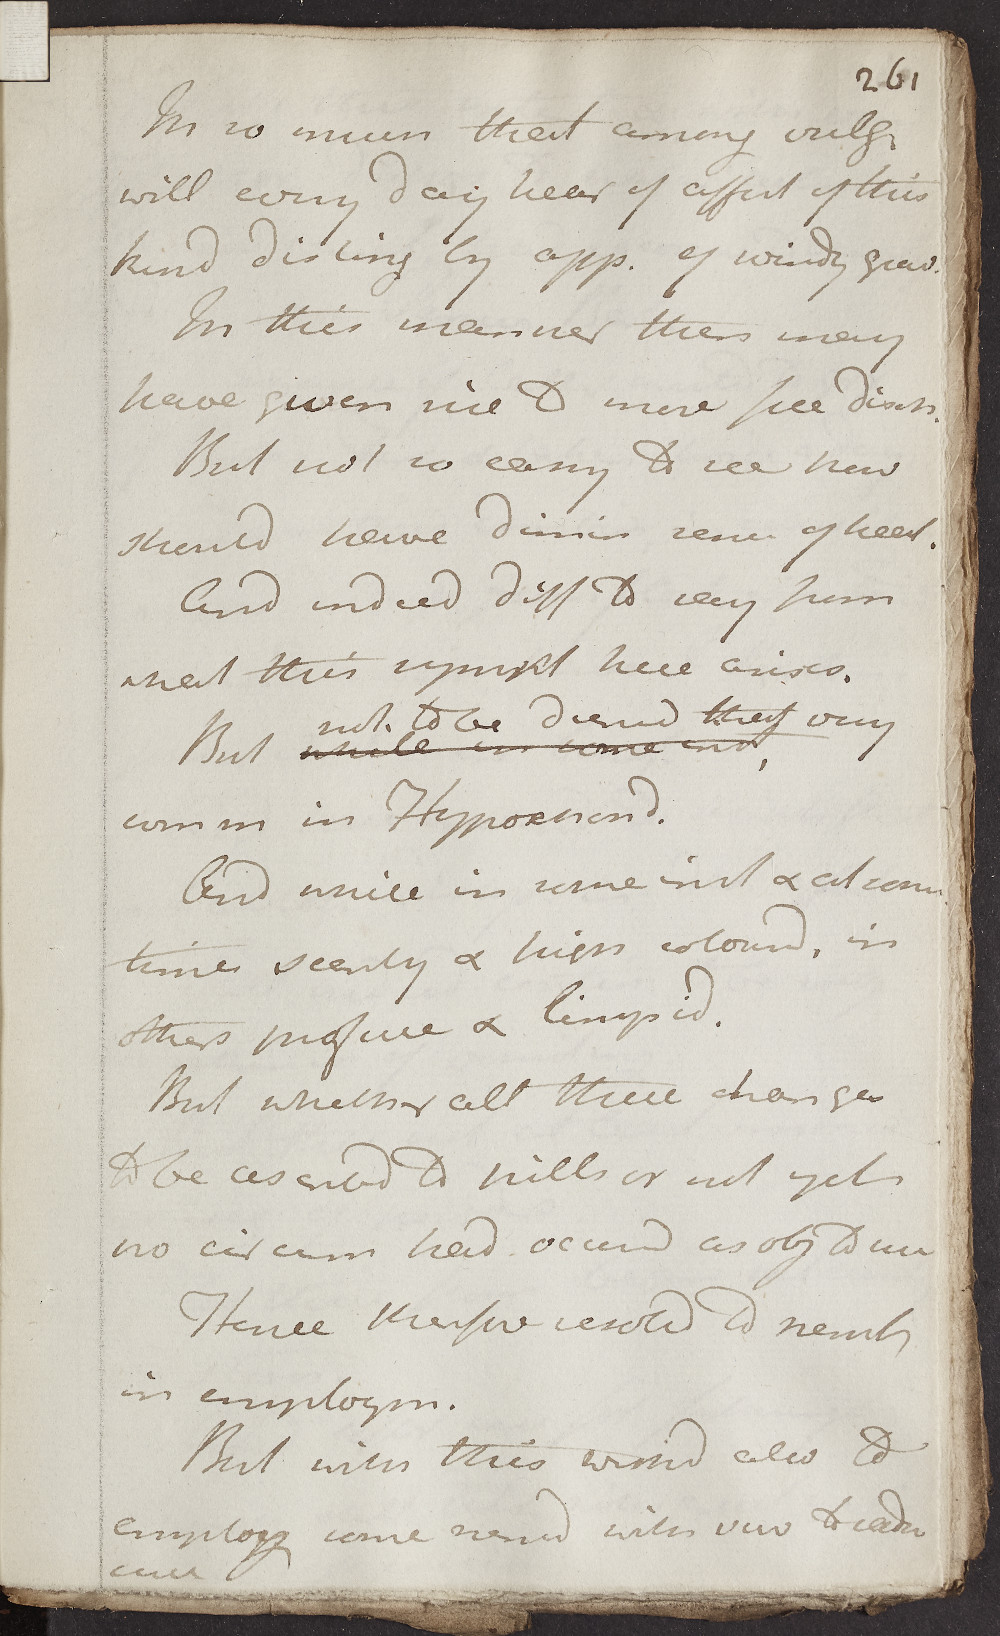 261
In so much that among vulgr
will every day hear of affect of this
kind disting by app. of windy grav.
In this manner then may
have given rise to more free disch.
But not so easy to see how
should have dimin sens of heat.
And indeed diff to say from
what this sympt here arises.
not to be denied that very
But while in some ind,
comm in Hypochond.
And while in some inst & at som
times scanty & high colourd, in
others profuse & limpid.
But whether all these changes
to be ascribd to pills or not yet
no circum had occurd as obj to use
Hence therfore resolvd to
in employm.
But with this wishd also to
employ some remd with view to
cure